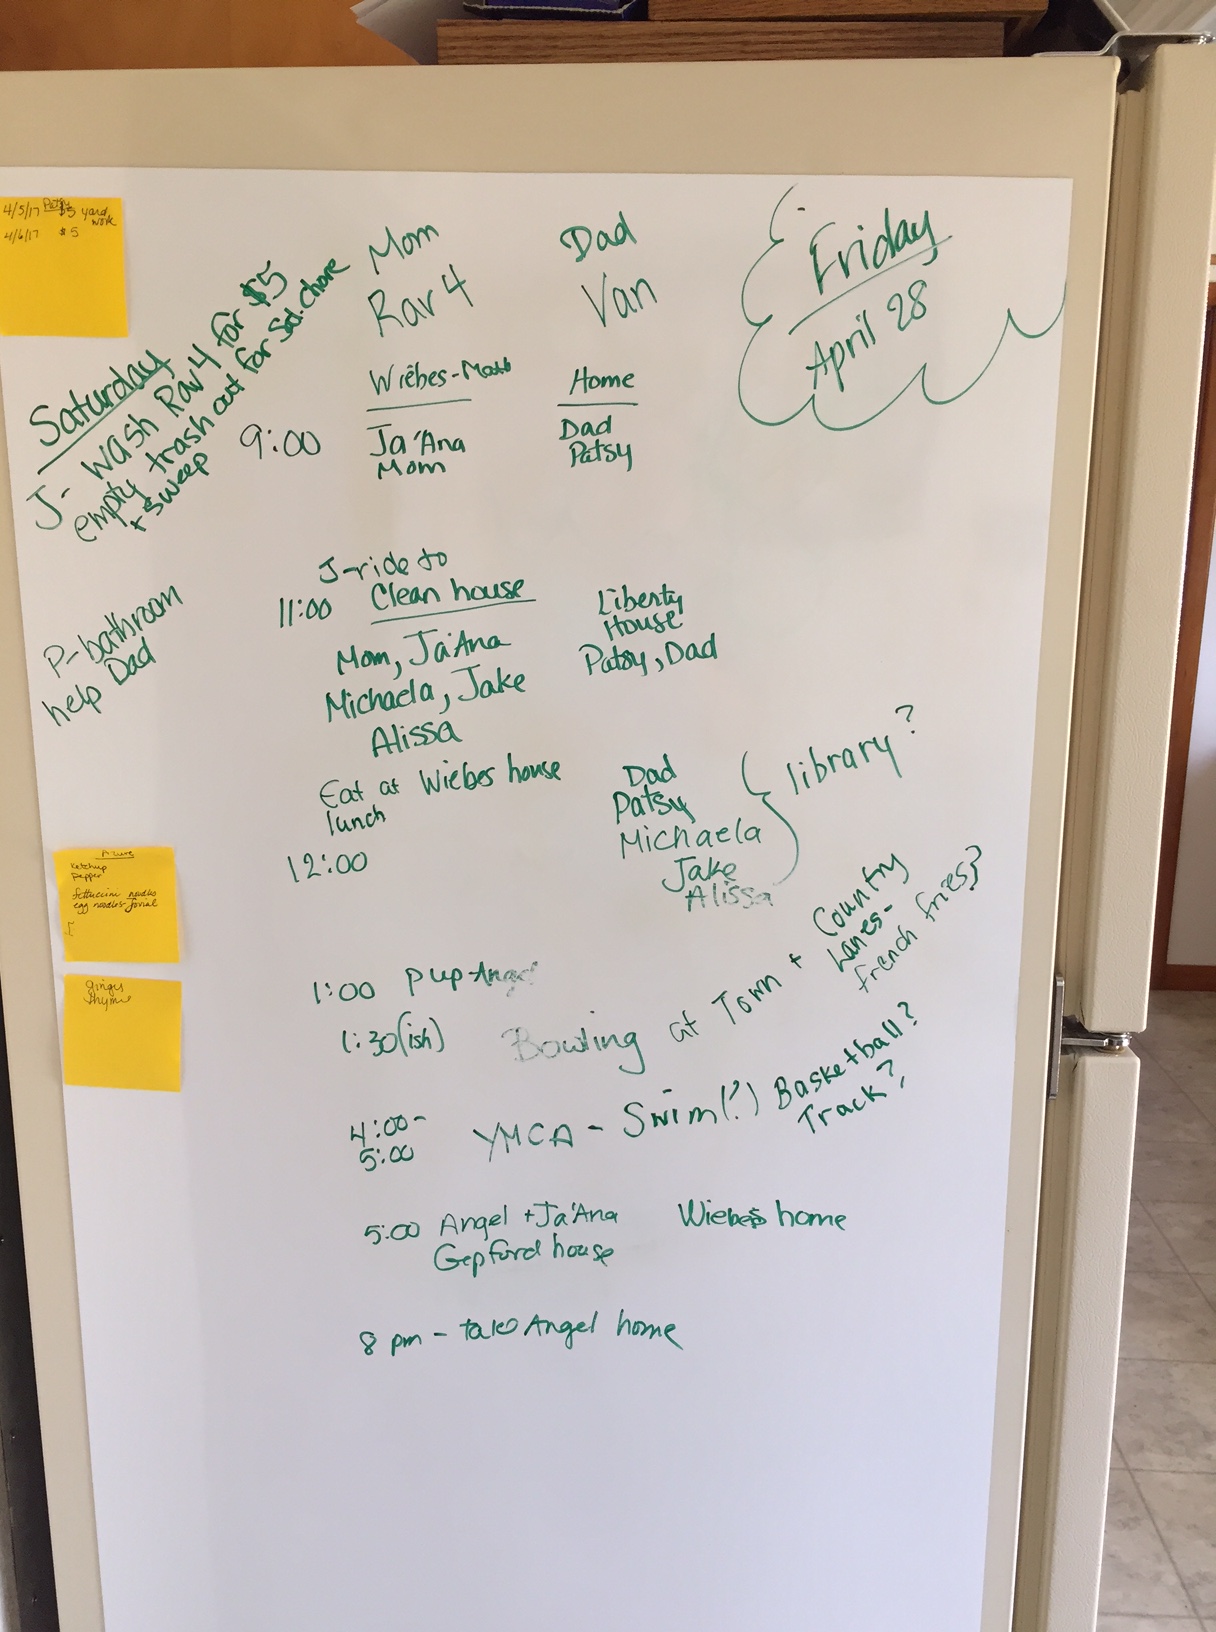 4/5/17 Patsy $5 yard work
4/6/17 $5
Mom
Rav 4
Dad
Van
Friday
April 28
Saturday
J- wash Rav 4 for $5
empty trash out for Sat. Chore
+ sweep
Wiebes-Math
Home
9:00
Ja'Ana
Mom
Dad
Patsy
J-ride to
11:00 Clean house
Mom, Ja'Ana
Michaela, Jake
Alissa
Liberty
House
Patsy, Dad
P-bathroom
help Dad
Eat at Wiebes house
lunch
12:00
Dad
Patsy
Michaela
Jake
Alissa
library?
Azure
Ketchup
Pepper
fettuccini noodles
egg noodles-Jovial
ginger
thyme
1:00 P up Angel
1:30(ish) Bowling at Town + Country
Lanes-
french fries}
4:00-
5:00
YMCA - Swim(?) Basketball?
Track?,
5:00 Angel + Ja'Ana
Gepford house
Wiebes home
8 pm - take Angel home